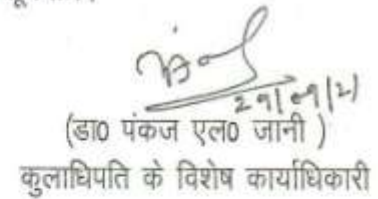 29/09/21
(डा0 पंकज एल0 जानी )
कुलाधिपति के विशेष कार्याधिकारी